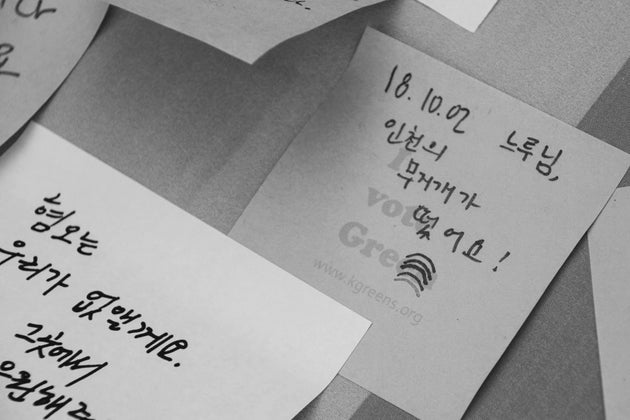 18.10.02 느루님,
인천의
무지개가
떴어요!
I
vote
Green
www.kgreens.org
혐오는
우리가 없앨게요.
그곳에서